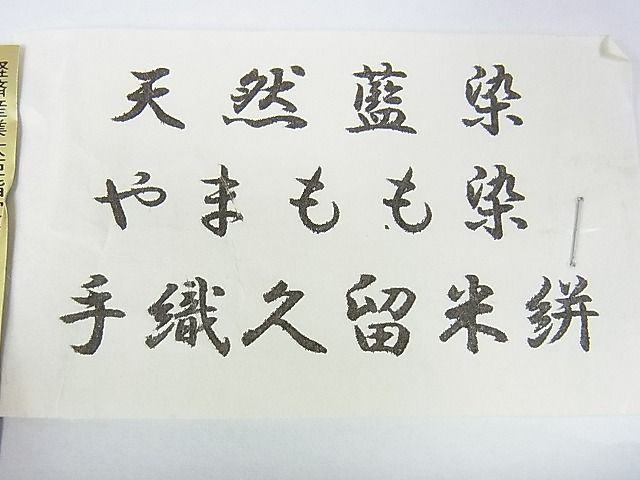 天然藍染
やまもも染
手織久留米絣
経済産業大臣指定